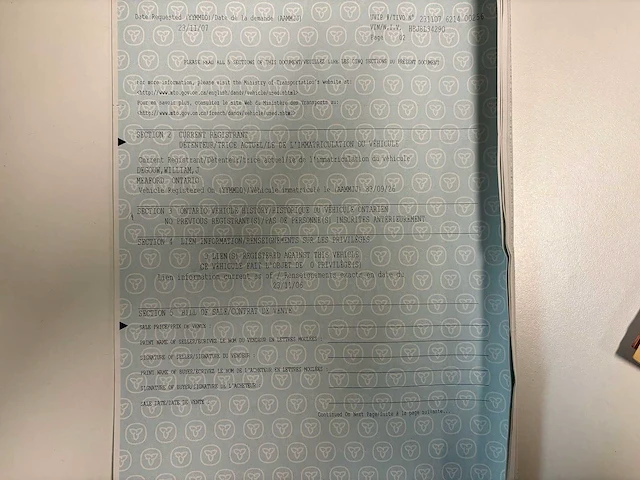 Date Requested (YYMMDD)/Date de la demande (AAMMJJ)
23/11/07
UVIP #/TIVO N° 231107 6214 00256
VIN/N.I.V. HBJ8L34290
Page 02
PLEASE READ ALL 5 SECTIONS OF THIS DOCUMENT/VEUILLEZ LIRE LES CINQ SECTIONS DU PRÉSENT DOCUMENT
For more information, please visit the Ministry of Transportation's website at:
<http://www.mto.gov.on.ca/english/dandv/vehicle/used.shtml>
Pour en savoir plus, consultez le site Web du Ministère des Transports au:
<http://www.mto.gov.on.ca/french/dandv/vehicle/used.shtml>
SECTION 2 CURRENT REGISTRANT
DÉTENTEUR/TRICE ACTUEL/LE DE L'IMMATRICULATION DU VÉHICULE
Current Registrant/Détenteur/trice actuel/le de l'immatriculation du véhicule
DEGOUW,WILLIAM,J
MEAFORD ONTARIO
Vehicle Registered On (YYMMDD)/Véhicule immatriculé le (AAMMJJ) 87/09/26
SECTION 3 ONTARIO VEHICLE HISTORY/HISTORIQUE DU VÉHICULE ONTARIEN
NO PREVIOUS REGISTRANT(S)/PAS DE PERSONNE(S) INSCRITES ANTÉRIEUREMENT
SECTION 4 LIEN INFORMATION/RENSEIGNEMENTS SUR LES PRIVILÈGES
0 LIEN(S) REGISTERED AGAINST THIS VEHICLE
CE VÉHICULE FAIT L'OBJET DE 0 PRIVILÈGE(S)
Lien information current as of / Renseignements exacts en date du
23/11/06
SECTION 5 BILL OF SALE/CONTRAT DE VENTE
SALE PRICE/PRIX DE VENTE :
PRINT NAME OF SELLER/ÉCRIVEZ LE NOM DU VENDEUR EN LETTRES MOULÉES :
SIGNATURE OF SELLER/SIGNATURE DU VENDEUR :
PRINT NAME OF BUYER/ÉCRIVEZ LE NOM DE L'ACHETEUR EN LETTRES MOULÉES :
SIGNATURE OF BUYER/SIGNATURE DE L'ACHETEUR :
SALE DATE/DATE DE VENTE :
Continued On Next Page/Suite à la page suivante